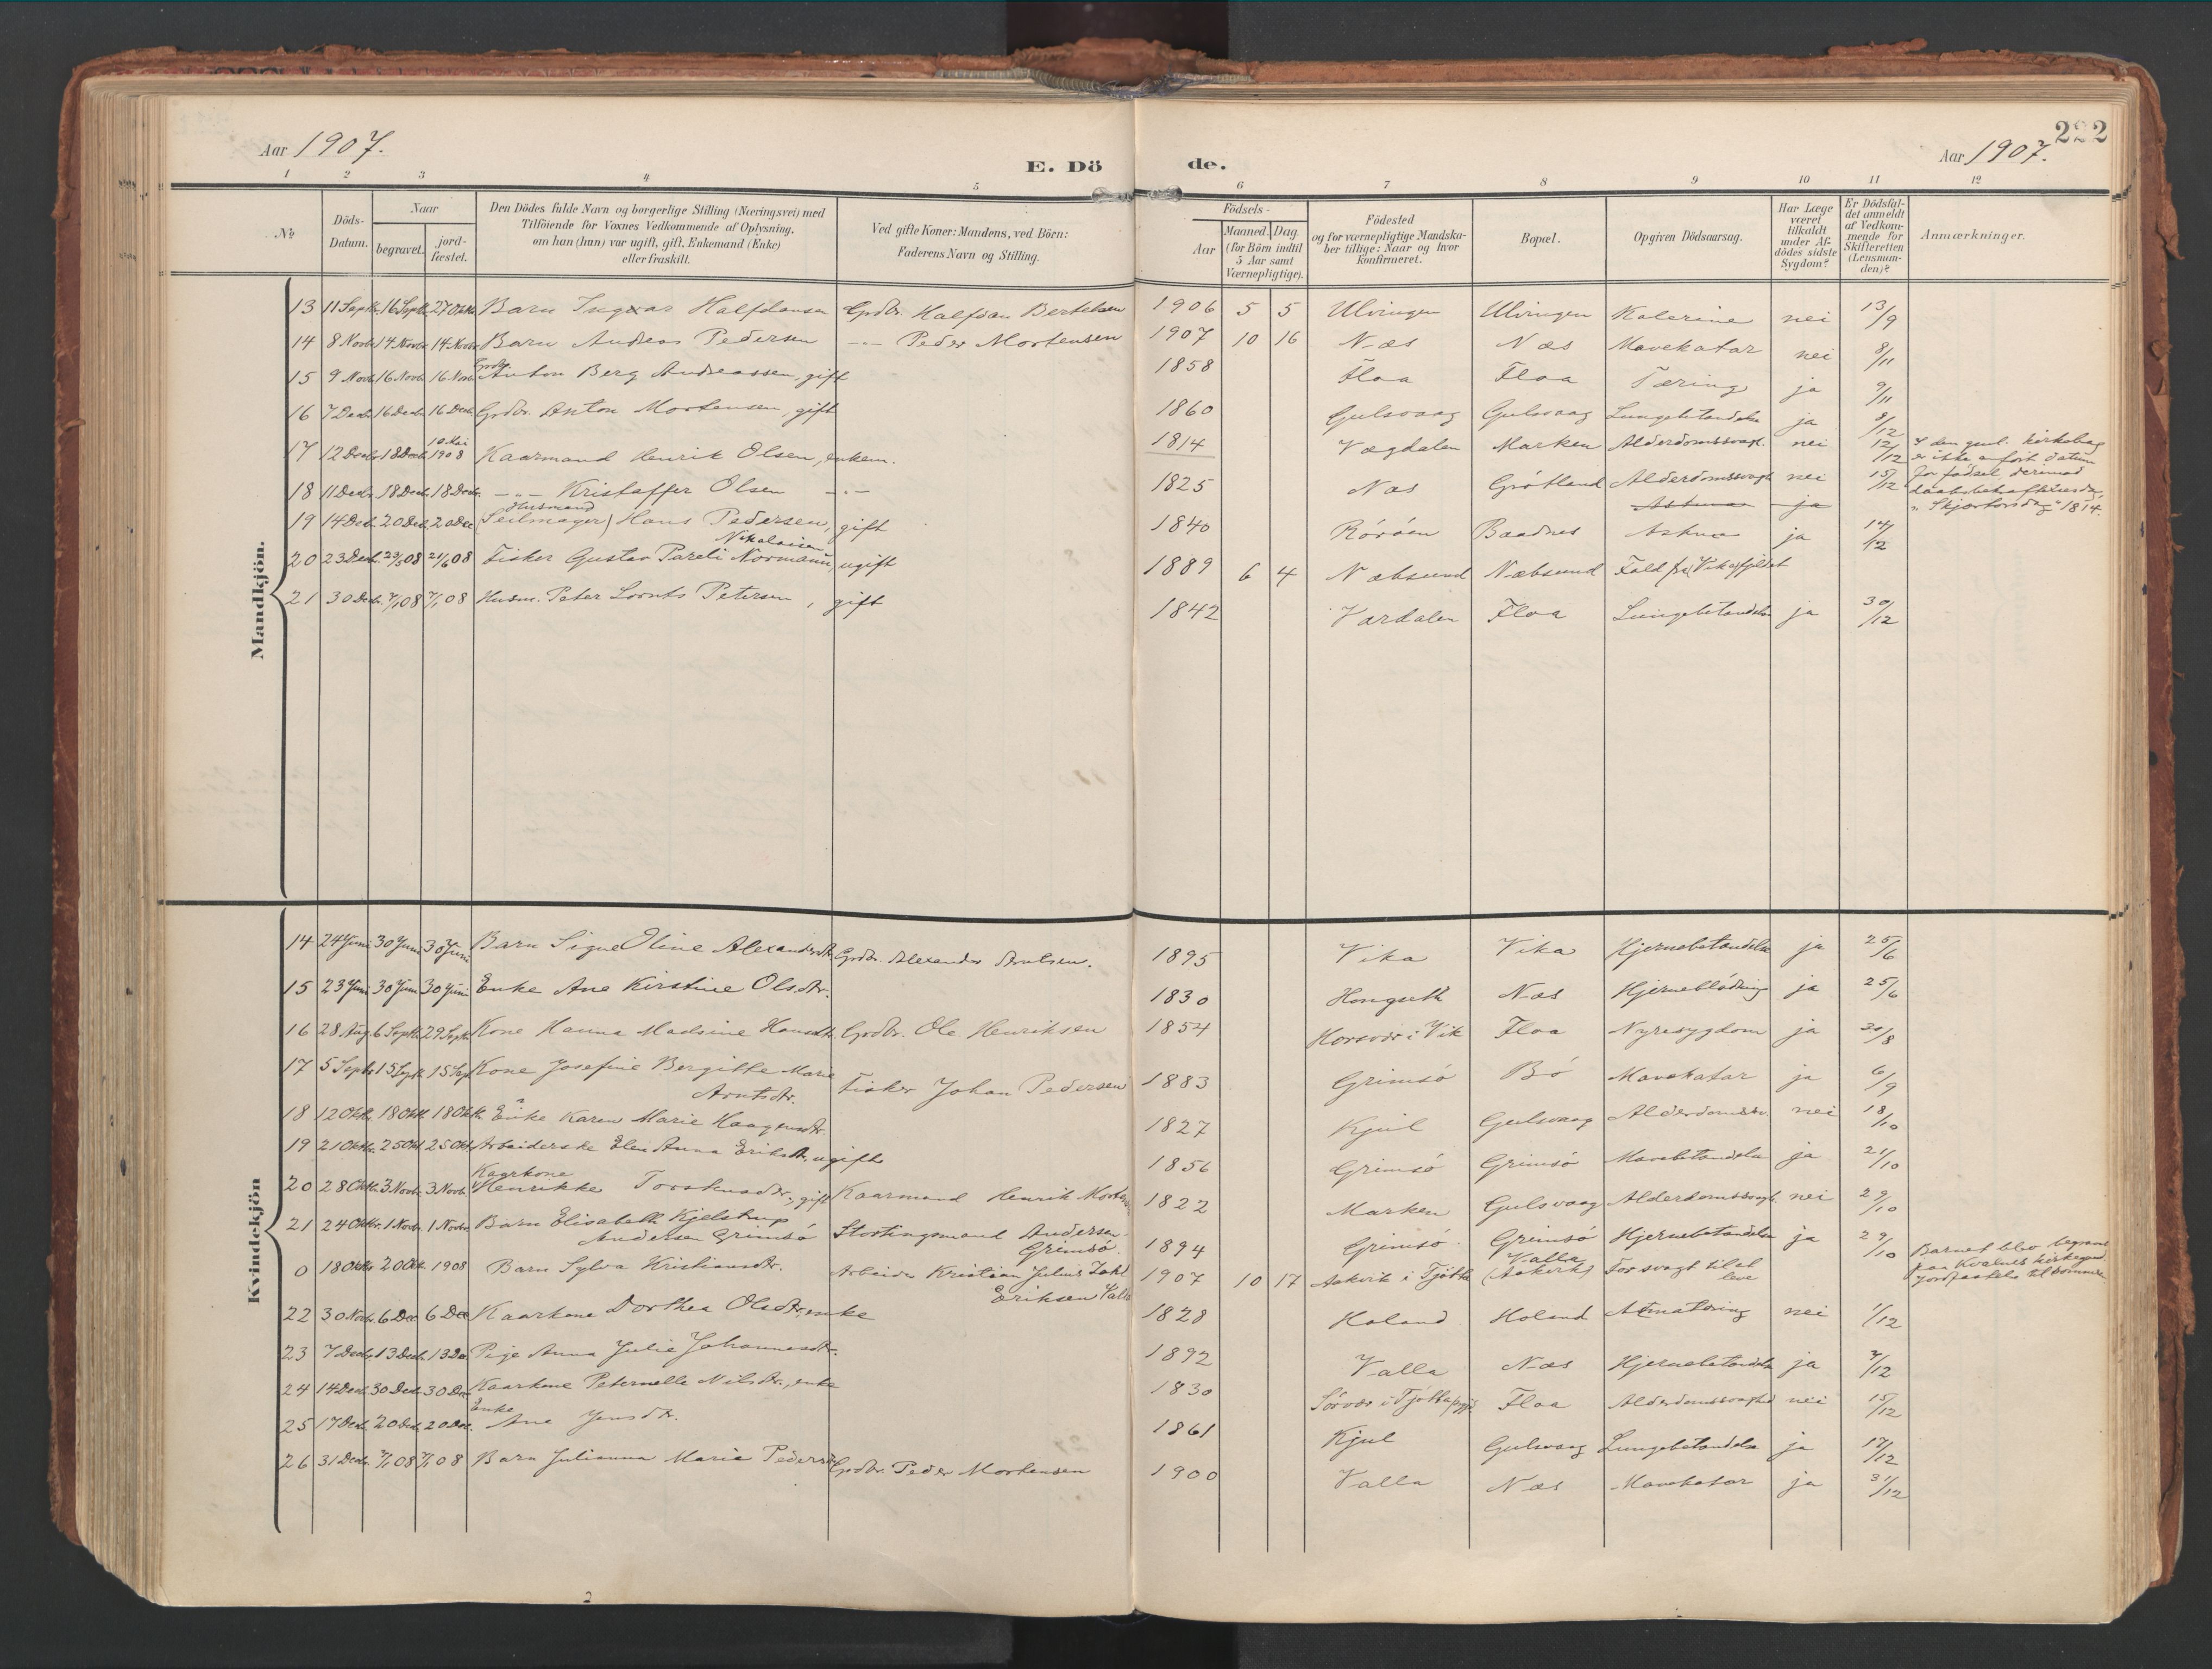 Aar 1907.
E. Döde.
222
Aar 1907.
1 2 3 4 5 6 7 8 9 10 11 12
No
Döds-Datum.
Naar
begravet.
jord-fæstet.
Den Dödes fulde Navn og borgerlige Stilling (Næringsvei) med
Tilföiende for Voxnes Vedkommende af Oplysning,
om han (hun) var ugift, gift, Enkemand (Enke)
eller fraskilt.
Ved gifte Koner: Mandens, ved Börn:
Faderens Navn og Stilling.
Födsels-
Aar
Maaned. Dag.
(for Börn indtil
5 Aar samt
Værnepligtige).
Födested
og for værnepligtige Mandska-
ber tillige: Naar og hvor
konfirmeret.
Bopæl.
Opgiven Dödsaarsag.
Har Læge
været
tilkaldt
under Af-
dödes sidste
Sygdom?
Er Dödsfal-
det anmeldt
af Vedkom-
mende for
Skifteretten
(Lensman-
den)?
Anmærkninger.
Mandkjön.
13 11 Septb. 16 Septb. 27 Oktb. Barn Ingvar Halfdansen Grdbr. Halfdan Bertelsen 1906 5 5 Ulvingen Ulvingen Kolerine nei 13/9
14 8 Novbr. 14 Novbr. 14 Novbr. Barn Andreas Pedersen -"- Peder Mortensen 1907 10 16 Næs Næs Mavekatar nei 8/11
15 9 Novb. 16 Novb. 16 Novb. Grdbr. Anton Berg Andreassen, gift 1858 Floa Floa Tæring ja 9/11
16 7 Decb. 16 Decb. 16 Decb. Grdbr. Anton Mortensen, gift 1860 Gulsvaag Gulsvaag Lungebetændelse ja 8/12
17 12 Decb. 18 Decb. 10 Mai 1908 Kaarmand Henrik Olsen, enkem. 1814 Vægdalen Marken Alderdomssvagh. nei 12/12 I den gml. kirkebog
er ikke anført datum
for fødsel derimod
"Skjærtorsdag" 1814.
18 11 Decb. 18 Decb. 18 Decb. -"- Kristaffer Olsen -"- 1825 Næs Grøtland Alderdomssvagh. nei 15/12
Astma ja
19 14 Decb. 20 Decb. 20 Dec Husmand (Seilmager) Hans Pedersen, gift 1840 Röröen Baadnes Astma ja 14/12
20 23 Decb. 23/5 08 21/6 08 Fisker Gustav Pareli Nikolaisen Normann, ugift 1889 6 4 Næbsund Næbsund Fald fra Vikafjeldet
21 30 Decb. 7/1 08 7/1 08 Husm. Peter Lornts Petersen, gift 1842 Værdalen Floa Lungebetændelse ja 30/12
Kvindekjön
14 24 Juni 30 Juni 30 Juni Barn Signe Oline Alexandersdtr. Grdbr. Alexander Arntsen. 1895 Vika Vika Hjernebetændelse ja 25/6
15 23 Juni 30 Juni 30 Juni Enke Ane Kirstine Olsdtr. 1830 Hongseth Næs Hjerneblödning ja 25/6
16 28 Aug. 6 Septb. 29 Septb. Kone Hanna Madsine Hansdtr. Grdbr. Ole Henriksen 1854 Horsvær i Vik Floa Nyresygdom ja 30/8
17 5 Septb. 15 Septb. 15 Sept Kone Josefine Bergitte Marie
Arntsdtr. Fisker Johan Pedersen 1883 Grimsö Bö Mavekatar ja 6/9
18 12 Oktb. 18 Oktb. 18 Oktb. Enke Karen Marie Haagensdtr. 1827 Kjul Gulsvaag Alderdomssv. nei 18/10
19 21 Oktbr. 25 Oktb. 25 Oktb. Arbeiderske Elen Anna Eriksdtr., ugift 1856 Grimsö Grimsö Mavebetændelse ja 21/10
20 28 Oktb. 3 Novbr. 3 Novb. Kaarkone Henrikke Torstensdtr., gift Kaarmand Henrik Mortensen 1822 Marken Gulsvaag Alderdomssvagh. nei 29/10
21 24 Oktbr. 1 Novbr. 1 Novbr. Barn Elisabeth Kjelstrup
Andersen Grimsö Stortingsmand Andersen-
Grimsö. 1894 Grimsö Grimsö Hjernebetændelse ja 29/10
0 18 Oktb. 20 Okt. 1908 Barn Sylva Kristiansdtr. Arbeider Kristian Julius Zahl
Eriksen Valla 1907 10 17 Aakvik i Tjötta Valla (Aakvik) For svagt til at
leve Barnet blev begravet
paa Kvalnes kirkegaard
jordfæstes til sommeren
22 30 Novb. 6 Dec 6 Dec Kaarkone Dorthea Olsdtr., enke 1828 Holand Holand Atmatæring nei 1/12
23 7 Decb. 13 Decb. 13 Dec. Pige Anna Julie Johannesdtr. 1892 Valla Næs Hjernebetændelse ja 7/12
24 14 Decb. 30 Decb. 30 Dec Kaarkone Peternelle Nilsdtr., enke 1830 Sörvær i Tjötta prgjd. Floa Alderdomssvaghed nei 15/12
25 17 Decb. 20 Decb. 20 Dec. Enke Ane Jensdtr. 1861 Kjul Gulsvaag Lungebetændelse ja 17/12
26 31 Decb. 7/1 08 7/1 08 Barn Julianna Marie Pedersdtr. Grdbr. Peder Mortensen 1900 Valla Næs Mavekatar ja 31/12
2